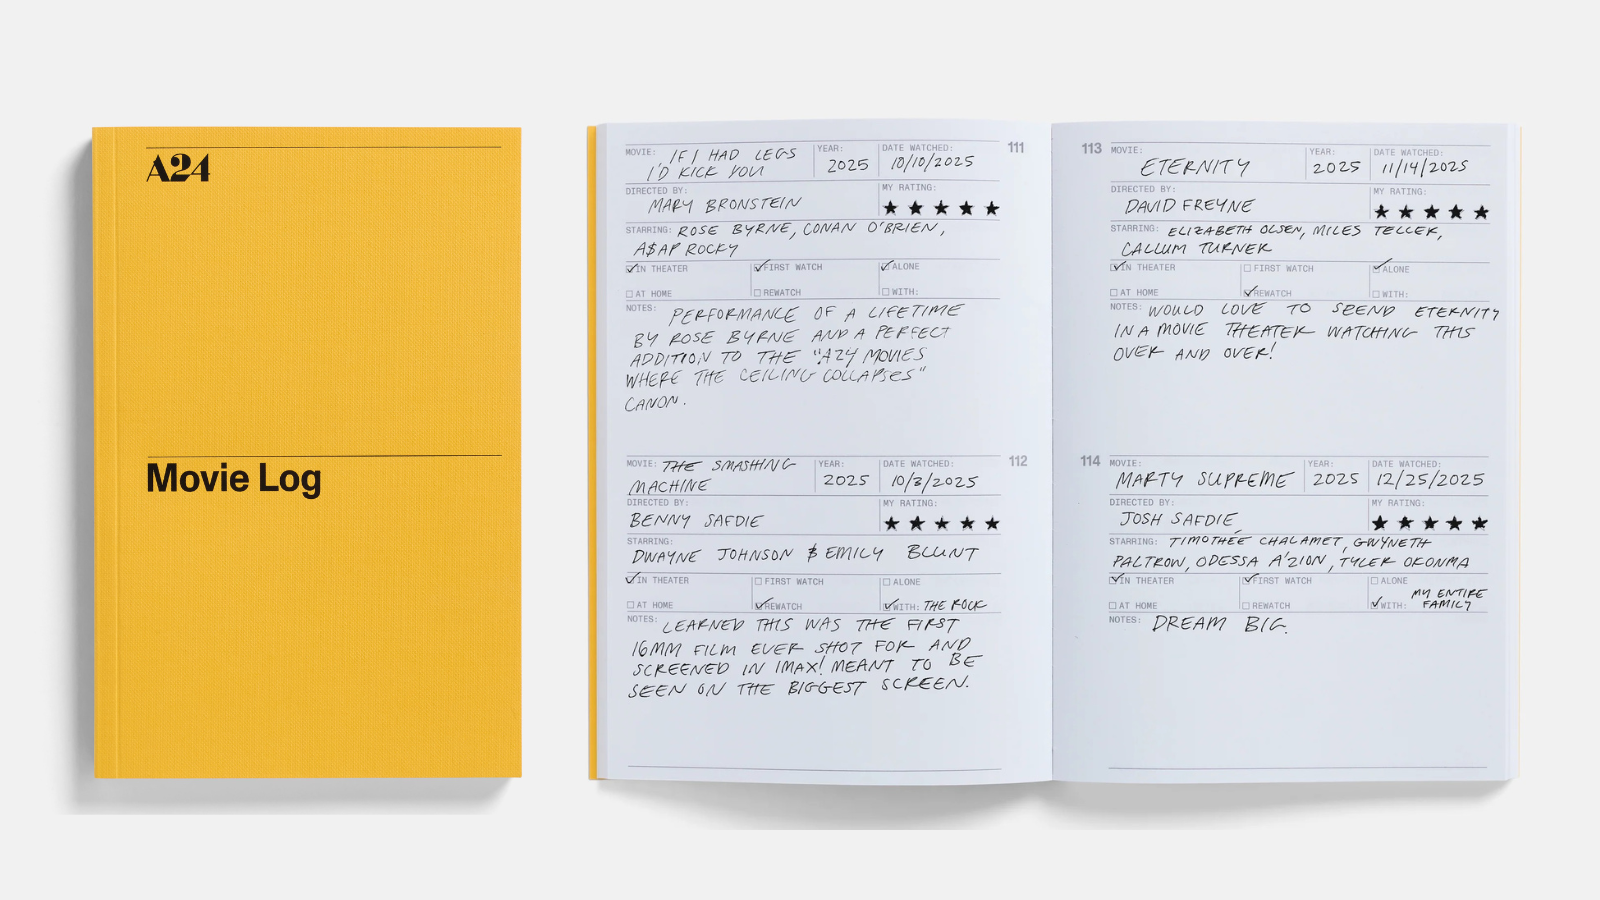 A24
Movie Log
111
MOVIE: IF I HAD LEGS
I'D KICK YOU
YEAR:
2025
DATE WATCHED:
10/10/2025
DIRECTED BY:
MARY BRONSTEIN
MY RATING:
★ ★ ★ ★ ★
STARRING: ROSE BYRNE, CONAN O'BRIEN,
A$AP ROCKY
☑ IN THEATER ☑ FIRST WATCH ☑ ALONE
☐ AT HOME ☐ REWATCH ☐ WITH:
NOTES: PERFORMANCE OF A LIFETIME
BY ROSE BYRNE AND A PERFECT
ADDITION TO THE "A24 MOVIES
WHERE THE CEILING COLLAPSES"
CANON.
112
MOVIE: THE SMASHING
MACHINE
YEAR:
2025
DATE WATCHED:
10/3/2025
DIRECTED BY:
BENNY SAFDIE
MY RATING:
★ ★ ★ ★ ★
STARRING:
DWAYNE JOHNSON & EMILY BLUNT
☑ IN THEATER ☐ FIRST WATCH ☐ ALONE
☐ AT HOME ☑ REWATCH ☑ WITH: THE ROCK
NOTES: LEARNED THIS WAS THE FIRST
16MM FILM EVER SHOT FOR AND
SCREENED IN IMAX! MEANT TO BE
SEEN ON THE BIGGEST SCREEN.
113
MOVIE:
ETERNITY
YEAR:
2025
DATE WATCHED:
11/14/2025
DIRECTED BY:
DAVID FREYNE
MY RATING:
★ ★ ★ ★ ★
STARRING: ELIZABETH OLSEN, MILES TELLER,
CALLUM TURNER
☑ IN THEATER ☐ FIRST WATCH ☑ ALONE
☐ AT HOME ☑ REWATCH ☐ WITH:
NOTES: WOULD LOVE TO SPEND ETERNITY
IN A MOVIE THEATER WATCHING THIS
OVER AND OVER!
114
MOVIE:
MARTY SUPREME
YEAR:
2025
DATE WATCHED:
12/25/2025
DIRECTED BY:
JOSH SAFDIE
MY RATING:
★ ★ ★ ★ ★
STARRING: TIMOTHÉE CHALAMET, GWYNETH
PALTROW, ODESSA A'ZION, TYLER OKONMA
☑ IN THEATER ☑ FIRST WATCH ☐ ALONE
☐ AT HOME ☐ REWATCH ☑ WITH: MY ENTIRE
FAMILY
NOTES: DREAM BIG.